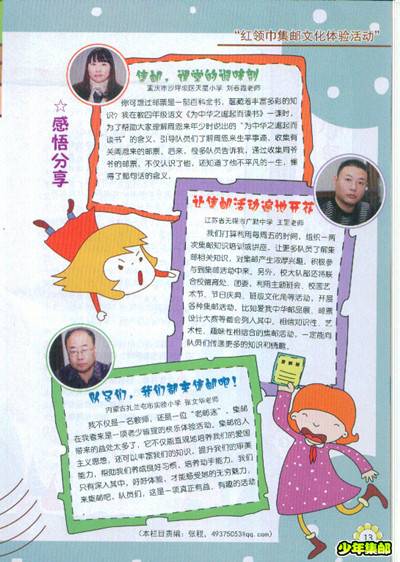 “红领巾集邮文化体验活动”
☆感悟分享
集邮，课堂的调味剂
重庆市沙坪坝区天星小学 刘春霞老师
你可想过邮票是一部百科全书，蕴藏着丰富多彩的知
识？我在教四年级语文《为中华之崛起而读书》一课时，
为了帮助大家理解周恩来年少时说出的“为中华之崛起而
读书”的含义，引导队员们了解周恩来生平事迹，收集有
关周恩来的邮票。后来，很多队员告诉我，通过收集周爷
爷的邮票，不仅认识了他，还知道了他不平凡的一生，懂
得了那句话的含义。
让集邮活动遍地开花
江苏省无锡市广勤中学 王罡老师
我们打算利用每周五的时间，组织一两
次集邮知识培训或讲座，让更多队员了解集
邮相关知识，对集邮产生浓厚兴趣，积极参
与到集邮活动中来。另外，校大队部还将联
合校德育处、团委，利用主题班会、校园艺
术节、节日庆典、班级文化周等活动，开展
各种集邮活动，比如爱我中华邮品展、邮票
设计大赛等都会列入其中。相信知识性、艺
术性、趣味性相结合的集邮活动，一定能向
队员们传递更多的知识和情趣。
队员们，我们都来集邮吧！
内蒙古扎兰屯市实验小学 张文华老师
我不仅是一名教师，还是一位“老邮迷”，集邮
在我看来是一项老少皆宜的快乐体验活动。集邮给人
带来的益处太多了，它不仅能直观地培养我们的爱国
主义思想，还可以丰富我们的知识，提升我们的审美
能力，帮助我们养成良好习惯，培养动手能力。我们
只有深入其中，好好体验，才能感受她的无穷魅力。
来集邮吧，队员们，这是一项真正有益、有趣的活动
（本栏目责编：张程，49375053@qq.com）
13
少年集邮